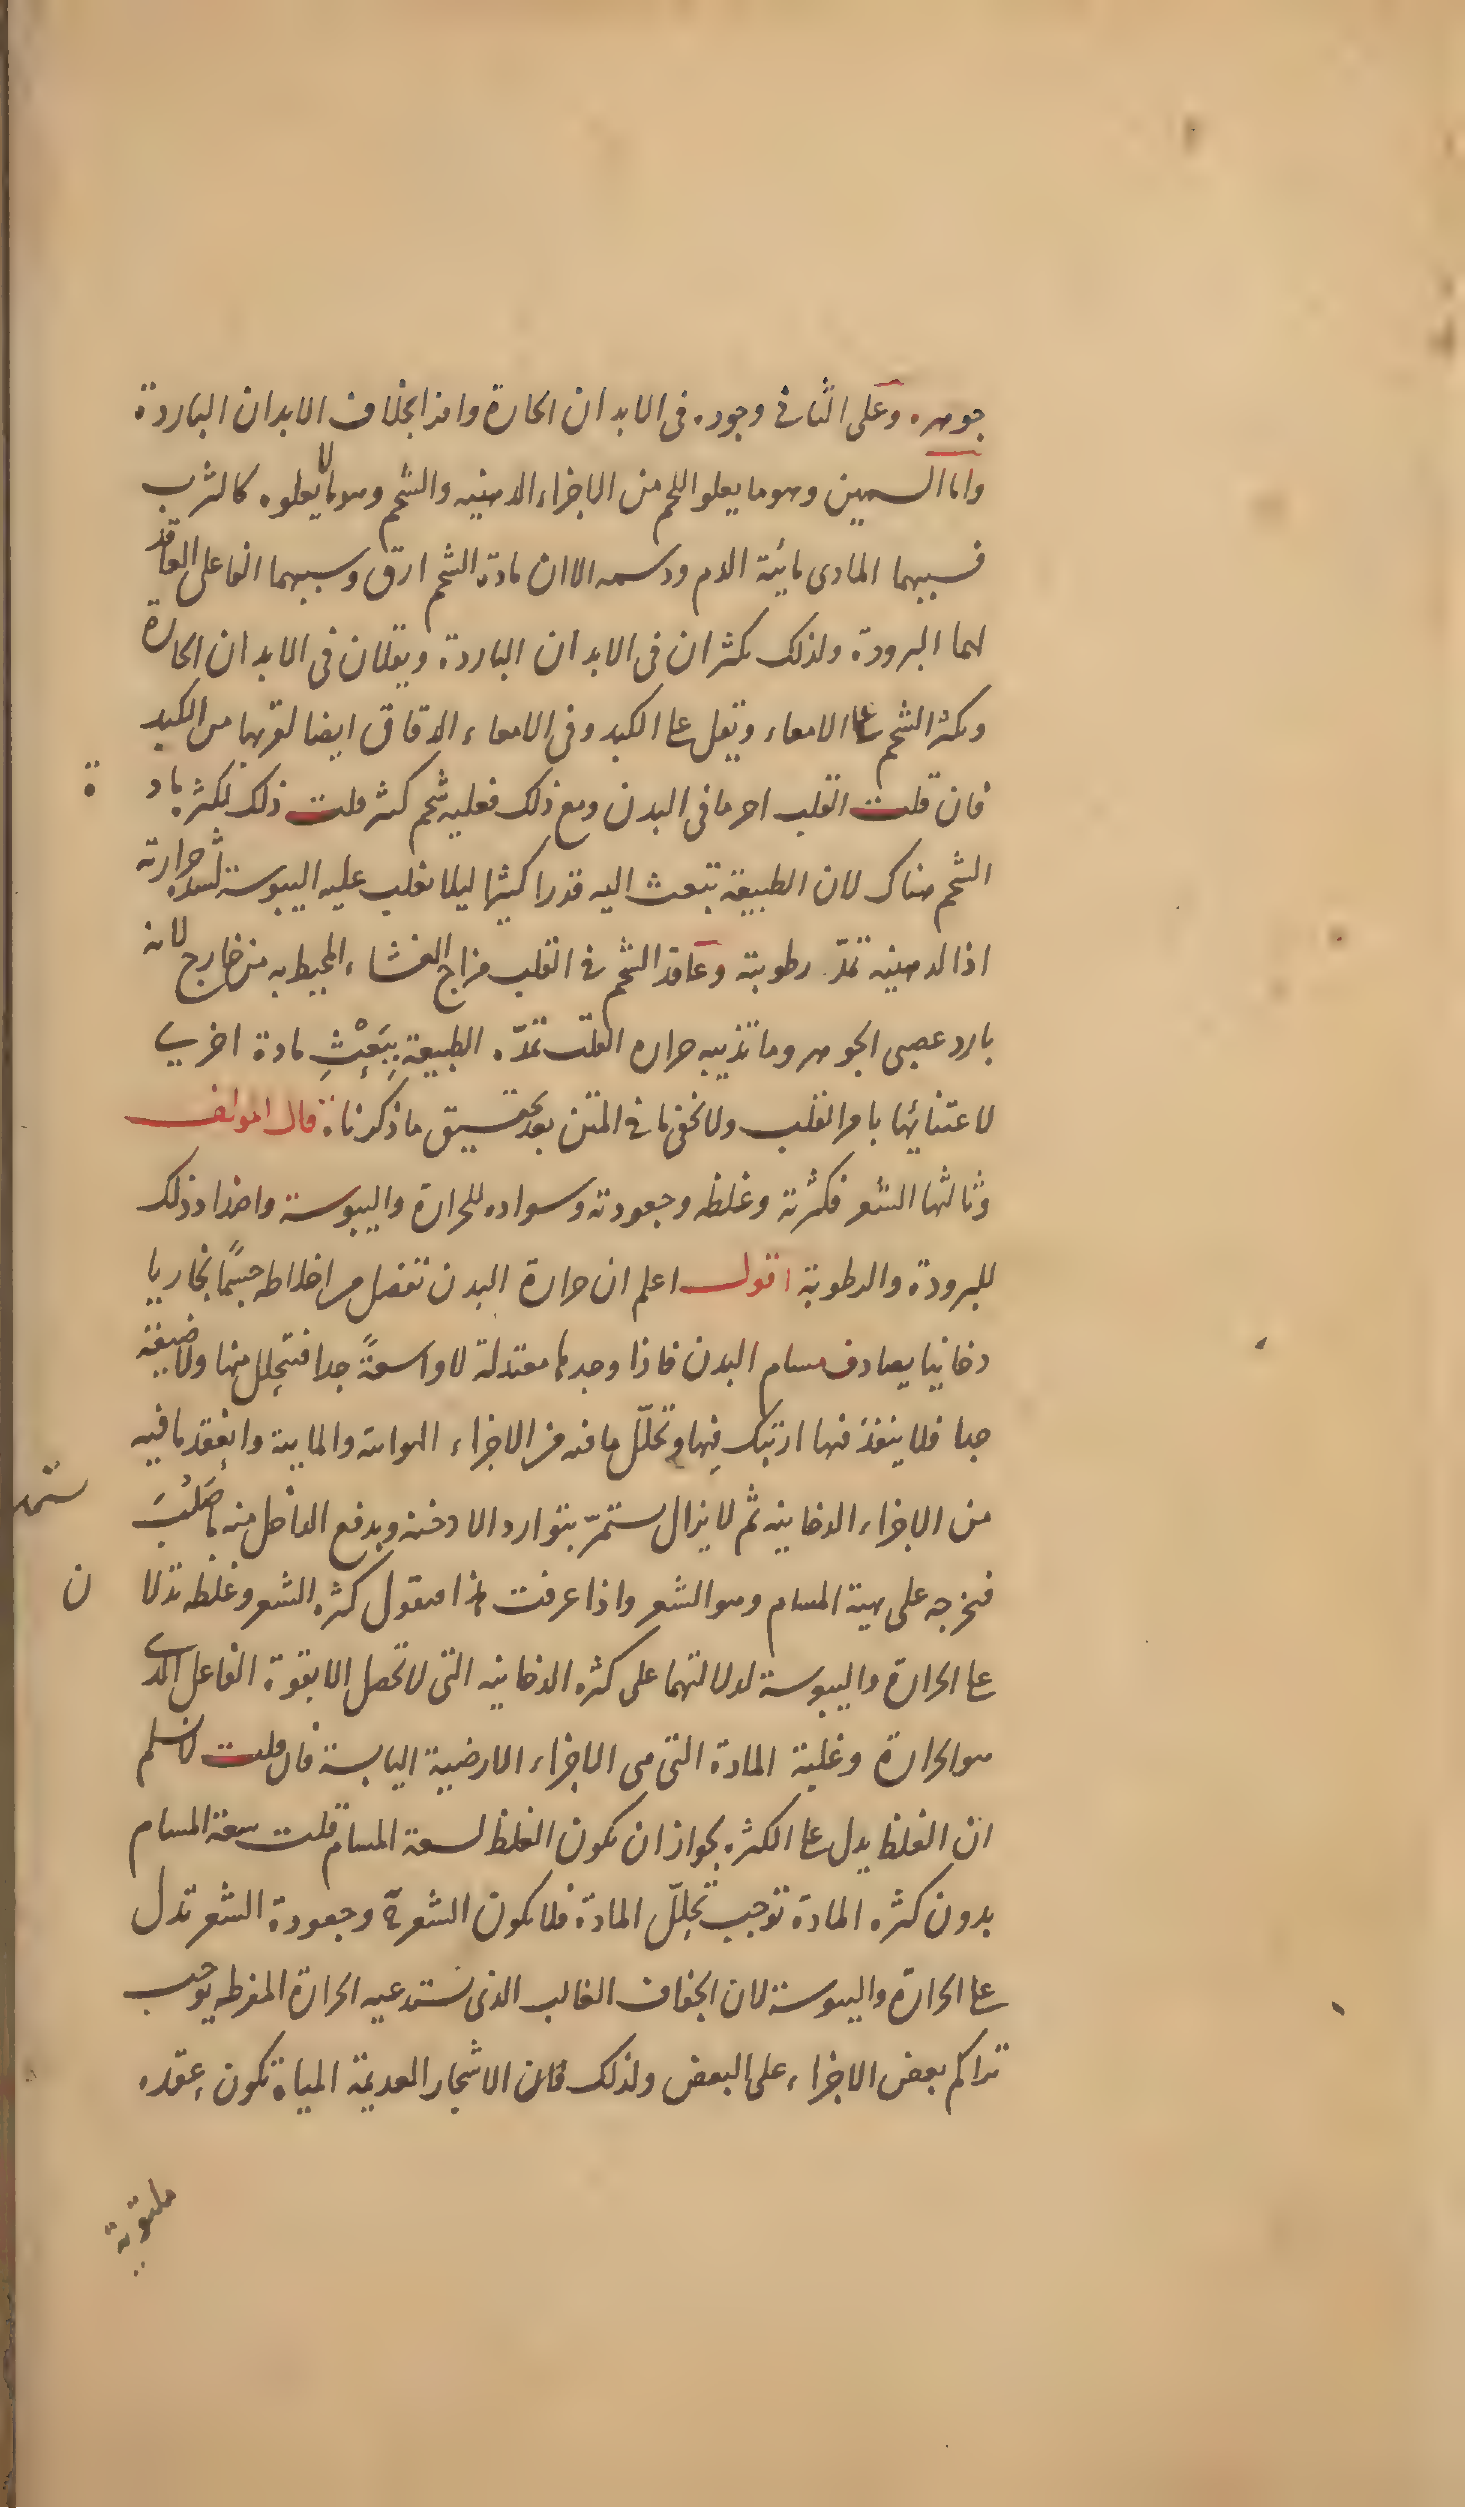 جوهره وعلى الثانى وجوده فى الابدان الحارة وامزا بخلاف الابدان الباردة
واما السمين وهو ما يعلو اللحم من الاجزاء الدهنيه والشحم وهو ما لا يعلوه كالثرب
فسببهما المادى مائية الدم ودسمه الا ان مادة الشحم ارق وسببهما الفاعلى العاقد
لهما البرودة ولذلك يكثران فى الابدان الباردة ويقلان فى الابدان الحارة
ويكثر الشحم على الامعاء ويقل على الكبد وفى الامعاء الدقاق ايضا لقربها من الكبد
فان قلت القلب احر ما فى البدن ومع ذلك فعليه شحم كثير قلت ذلك لكثرة ماد ة
الشحم هناك لان الطبيعة تبعث اليه قدرا كثيرا ليلا تغلب عليه اليبوسة لشدة حرارته
اذ الدهنيه تمدّ رطوبته وعاقد الشحم فى القلب مزاج الغشاء المحيط به من خارج لانه
بارد عصبى الجوهر وما تذيبه حرارة القلب تمدّه الطبيعة ببَعْثِ مادة اخرى
لاعتنائها بامر القلب ولا يخفى ما فى المتن بعد تحقيق ما ذكرناه قال المولف
وثالثها الشعر فكثرته وغلظه وجعودته وسواده للحرارة واليبوسة واضداد ذلك
للبرودة والرطوبة اقول اعلم ان حرارة البدن تفصل من اخلاطه جسمًا بخاريا
دخانيا يصادف مسام البدن فاذا وجدها معتدلة لا واسعةً جدا فتتحلل منها ولا ضيقة
جدا فلا ينفذ فيها ارتبك فيها وتحلّل ما فيه من الاجزاء الهوائية والمايية وانعقد ما فيه
من الاجزاء الدخانيه ثم لا يزال يستمرّ بتوارد الادخنه ويدفع الداخل منه ما صَلُبَ يستمد
فيخرجه على هيئة المسام وهو الشعر واذا عرفت هذا فنقول كثرة الشعر وغلظه تدلا ن
على الحرارة واليبوسة لدلالتهما على كثرة الدخانيه التى لا تحصل الا بقوة الفاعل الذى
هو الحرارة وغلبة المادة التى هى الاجزاء الارضية اليابسة فان قلت لا نسلم
ان الغلظ يدل على الكثرة لجواز ان يكون الغلظ لسعة المسام قلت سعة المسام
بدون كثرة المادة توجب تحلّل المادة فلا يكون الشعر ة وجعودة الشعر تدل
على الحرارة واليبوسة لان الجفاف الغالب الذى تستدعيه الحرارة المفرطه يوجب
تراكم بعض الاجزاء على البعض ولذلك فان الاشجار العديمة المياه تكون عقده
ملتوية